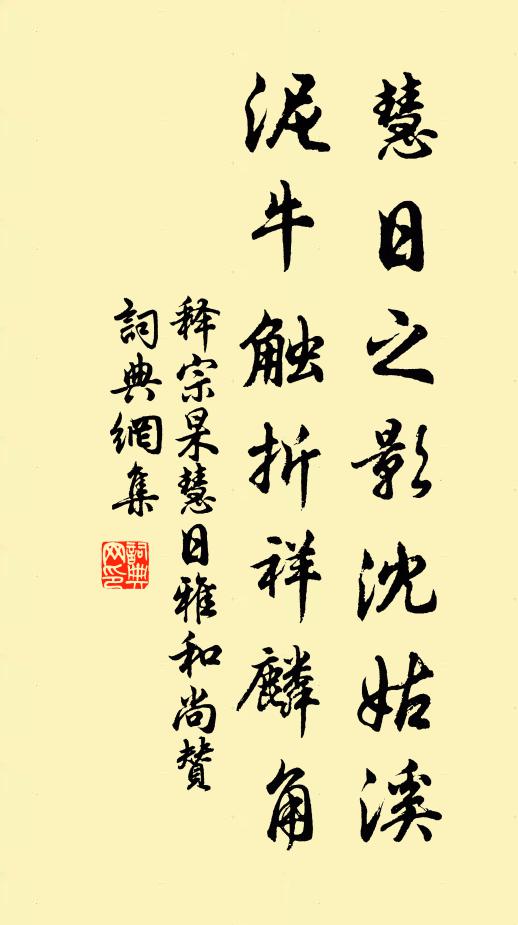 慧日之影沈姑溪
泥牛触折祥麟角
释宗杲慧日雅和尚賛
詞典網集
詞典
网印